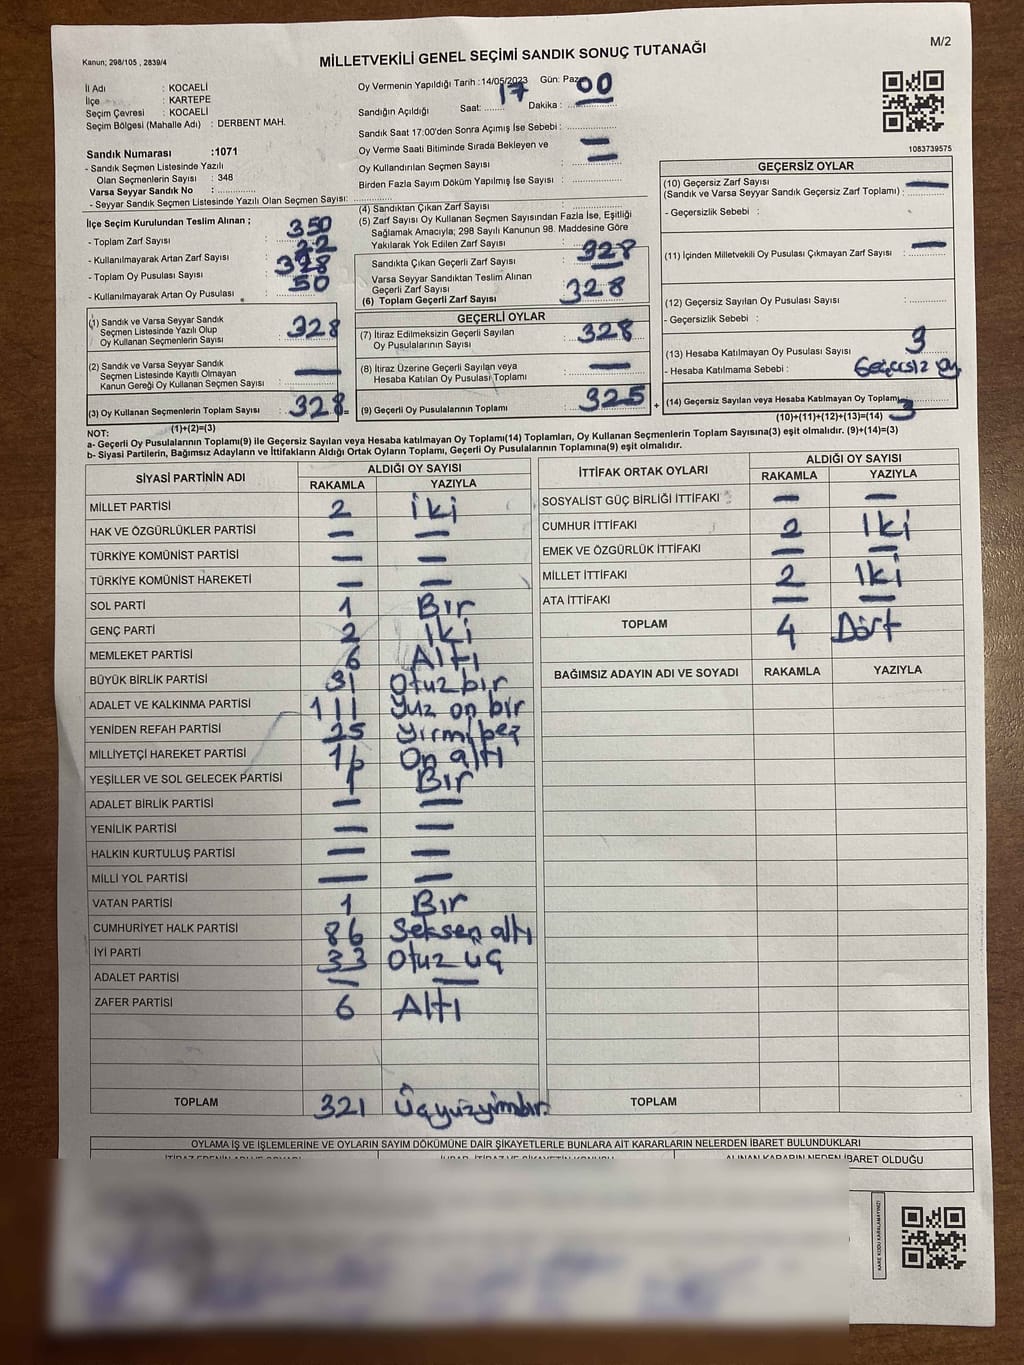 Kanun; 298/105 , 2839/4
MİLLETVEKİLİ GENEL SEÇİMİ SANDIK SONUÇ TUTANAĞI
M/2
İl Adı : KOCAELİ
İlçe : KARTEPE
Seçim Çevresi : KOCAELİ
Seçim Bölgesi (Mahalle Adı) : DERBENT MAH.
Sandık Numarası :1071
- Sandık Seçmen Listesinde Yazılı
Olan Seçmenlerin Sayısı : 348
Varsa Seyyar Sandık No :
- Seyyar Sandık Seçmen Listesinde Yazılı Olan Seçmen Sayısı:
Oy Vermenin Yapıldığı Tarih : 14/05/2023 Gün: Paz
Sandığın Açıldığı Saat: 17 Dakika : 00
Sandık Saat 17:00'den Sonra Açımış İse Sebebi :
Oy Verme Saati Bitiminde Sırada Bekleyen ve —
Oy Kullandırılan Seçmen Sayısı : —
Birden Fazla Sayım Döküm Yapılmış İse Sayısı :
1083739575
İlçe Seçim Kurulundan Teslim Alınan ;
- Toplam Zarf Sayısı : 350
- Kullanılmayarak Artan Zarf Sayısı : 22
- Toplam Oy Pusulası Sayısı : 378
- Kullanılmayarak Artan Oy Pusulası : 50
(1) Sandık ve Varsa Seyyar Sandık
Seçmen Listesinde Yazılı Olup
Oy Kullanan Seçmenlerin Sayısı : 328
(2) Sandık ve Varsa Seyyar Sandık
Seçmen Listesinde Kayıtlı Olmayan
Kanun Gereği Oy Kullanan Seçmen Sayısı : —
(3) Oy Kullanan Seçmenlerin Toplam Sayısı : 328 =
(1)+(2)=(3)
(4) Sandıktan Çıkan Zarf Sayısı :
(5) Zarf Sayısı Oy Kullanan Seçmen Sayısından Fazla İse, Eşitliği
Sağlamak Amacıyla; 298 Sayılı Kanunun 98. Maddesine Göre
Yakılarak Yok Edilen Zarf Sayısı :
Sandıkta Çıkan Geçerli Zarf Sayısı : 328
Varsa Seyyar Sandıktan Teslim Alınan
Geçerli Zarf Sayısı : —
(6) Toplam Geçerli Zarf Sayısı : 328
GEÇERLİ OYLAR
(7) İtiraz Edilmeksizin Geçerli Sayılan
Oy Pusulalarının Sayısı : 328
(8) İtiraz Üzerine Geçerli Sayılan veya
Hesaba Katılan Oy Pusulası Toplamı : —
(9) Geçerli Oy Pusulalarının Toplamı : 325 +
GEÇERSİZ OYLAR
(10) Geçersiz Zarf Sayısı —
(Sandık ve Varsa Seyyar Sandık Geçersiz Zarf Toplamı) :
- Geçersizlik Sebebi :
(11) İçinden Milletvekili Oy Pusulası Çıkmayan Zarf Sayısı : —
(12) Geçersiz Sayılan Oy Pusulası Sayısı :
- Geçersizlik Sebebi :
(13) Hesaba Katılmayan Oy Pusulası Sayısı : 3
- Hesaba Katılmama Sebebi : Geçersiz oy
(14) Geçersiz Sayılan veya Hesaba Katılmayan Oy Toplamı 3
(10)+(11)+(12)+(13)=(14)
NOT:
a- Geçerli Oy Pusulalarının Toplamı(9) ile Geçersiz Sayılan veya Hesaba katılmayan Oy Toplamı(14) Toplamları, Oy Kullanan Seçmenlerin Toplam Sayısına(3) eşit olmalıdır. (9)+(14)=(3)
b- Siyasi Partilerin, Bağımsız Adayların ve İttifakların Aldığı Ortak Oyların Toplamı, Geçerli Oy Pusulalarının Toplamına(9) eşit olmalıdır.
SİYASİ PARTİNİN ADI ALDIĞI OY SAYISI
RAKAMLA YAZIYLA
MİLLET PARTİSİ 2 İki
HAK VE ÖZGÜRLÜKLER PARTİSİ — —
TÜRKİYE KOMÜNİST PARTİSİ — —
TÜRKİYE KOMÜNİST HAREKETİ — —
SOL PARTİ 1 Bir
GENÇ PARTİ 2 Iki
MEMLEKET PARTİSİ 6 Altı
BÜYÜK BİRLİK PARTİSİ 31 Otuz bir
ADALET VE KALKINMA PARTİSİ 111 Yuz on bir
YENİDEN REFAH PARTİSİ 25 Yirmi beş
MİLLİYETÇİ HAREKET PARTİSİ 16 On altı
YEŞİLLER VE SOL GELECEK PARTİSİ 1 Bir
ADALET BİRLİK PARTİSİ — —
YENİLİK PARTİSİ — —
HALKIN KURTULUŞ PARTİSİ — —
MİLLİ YOL PARTİSİ — —
VATAN PARTİSİ 1 Bır
CUMHURİYET HALK PARTİSİ 86 Seksen altı
İYİ PARTİ 33 Otuz üç
ADALET PARTİSİ — —
ZAFER PARTİSİ 6 Altı
TOPLAM 321 Üçyüzyirmibir
İTTİFAK ORTAK OYLARI ALDIĞI OY SAYISI
RAKAMLA YAZIYLA
SOSYALİST GÜÇ BİRLİĞİ İTTİFAKI — —
CUMHUR İTTİFAKI 2 Iki
EMEK VE ÖZGÜRLÜK İTTİFAKI — —
MİLLET İTTİFAKI 2 Iki
ATA İTTİFAKI — —
TOPLAM 4 Dört
BAĞIMSIZ ADAYIN ADI VE SOYADI RAKAMLA YAZIYLA
TOPLAM
OYLAMA İŞ VE İŞLEMLERİNE VE OYLARIN SAYIM DÖKÜMÜNE DAİR ŞİKAYETLERLE BUNLARA AİT KARARLARIN NELERDEN İBARET BULUNDUKLARI
ALINAN KARARIN NEDEN İBARET OLDUĞU
KARE KODU KARALAMAYINIZ!